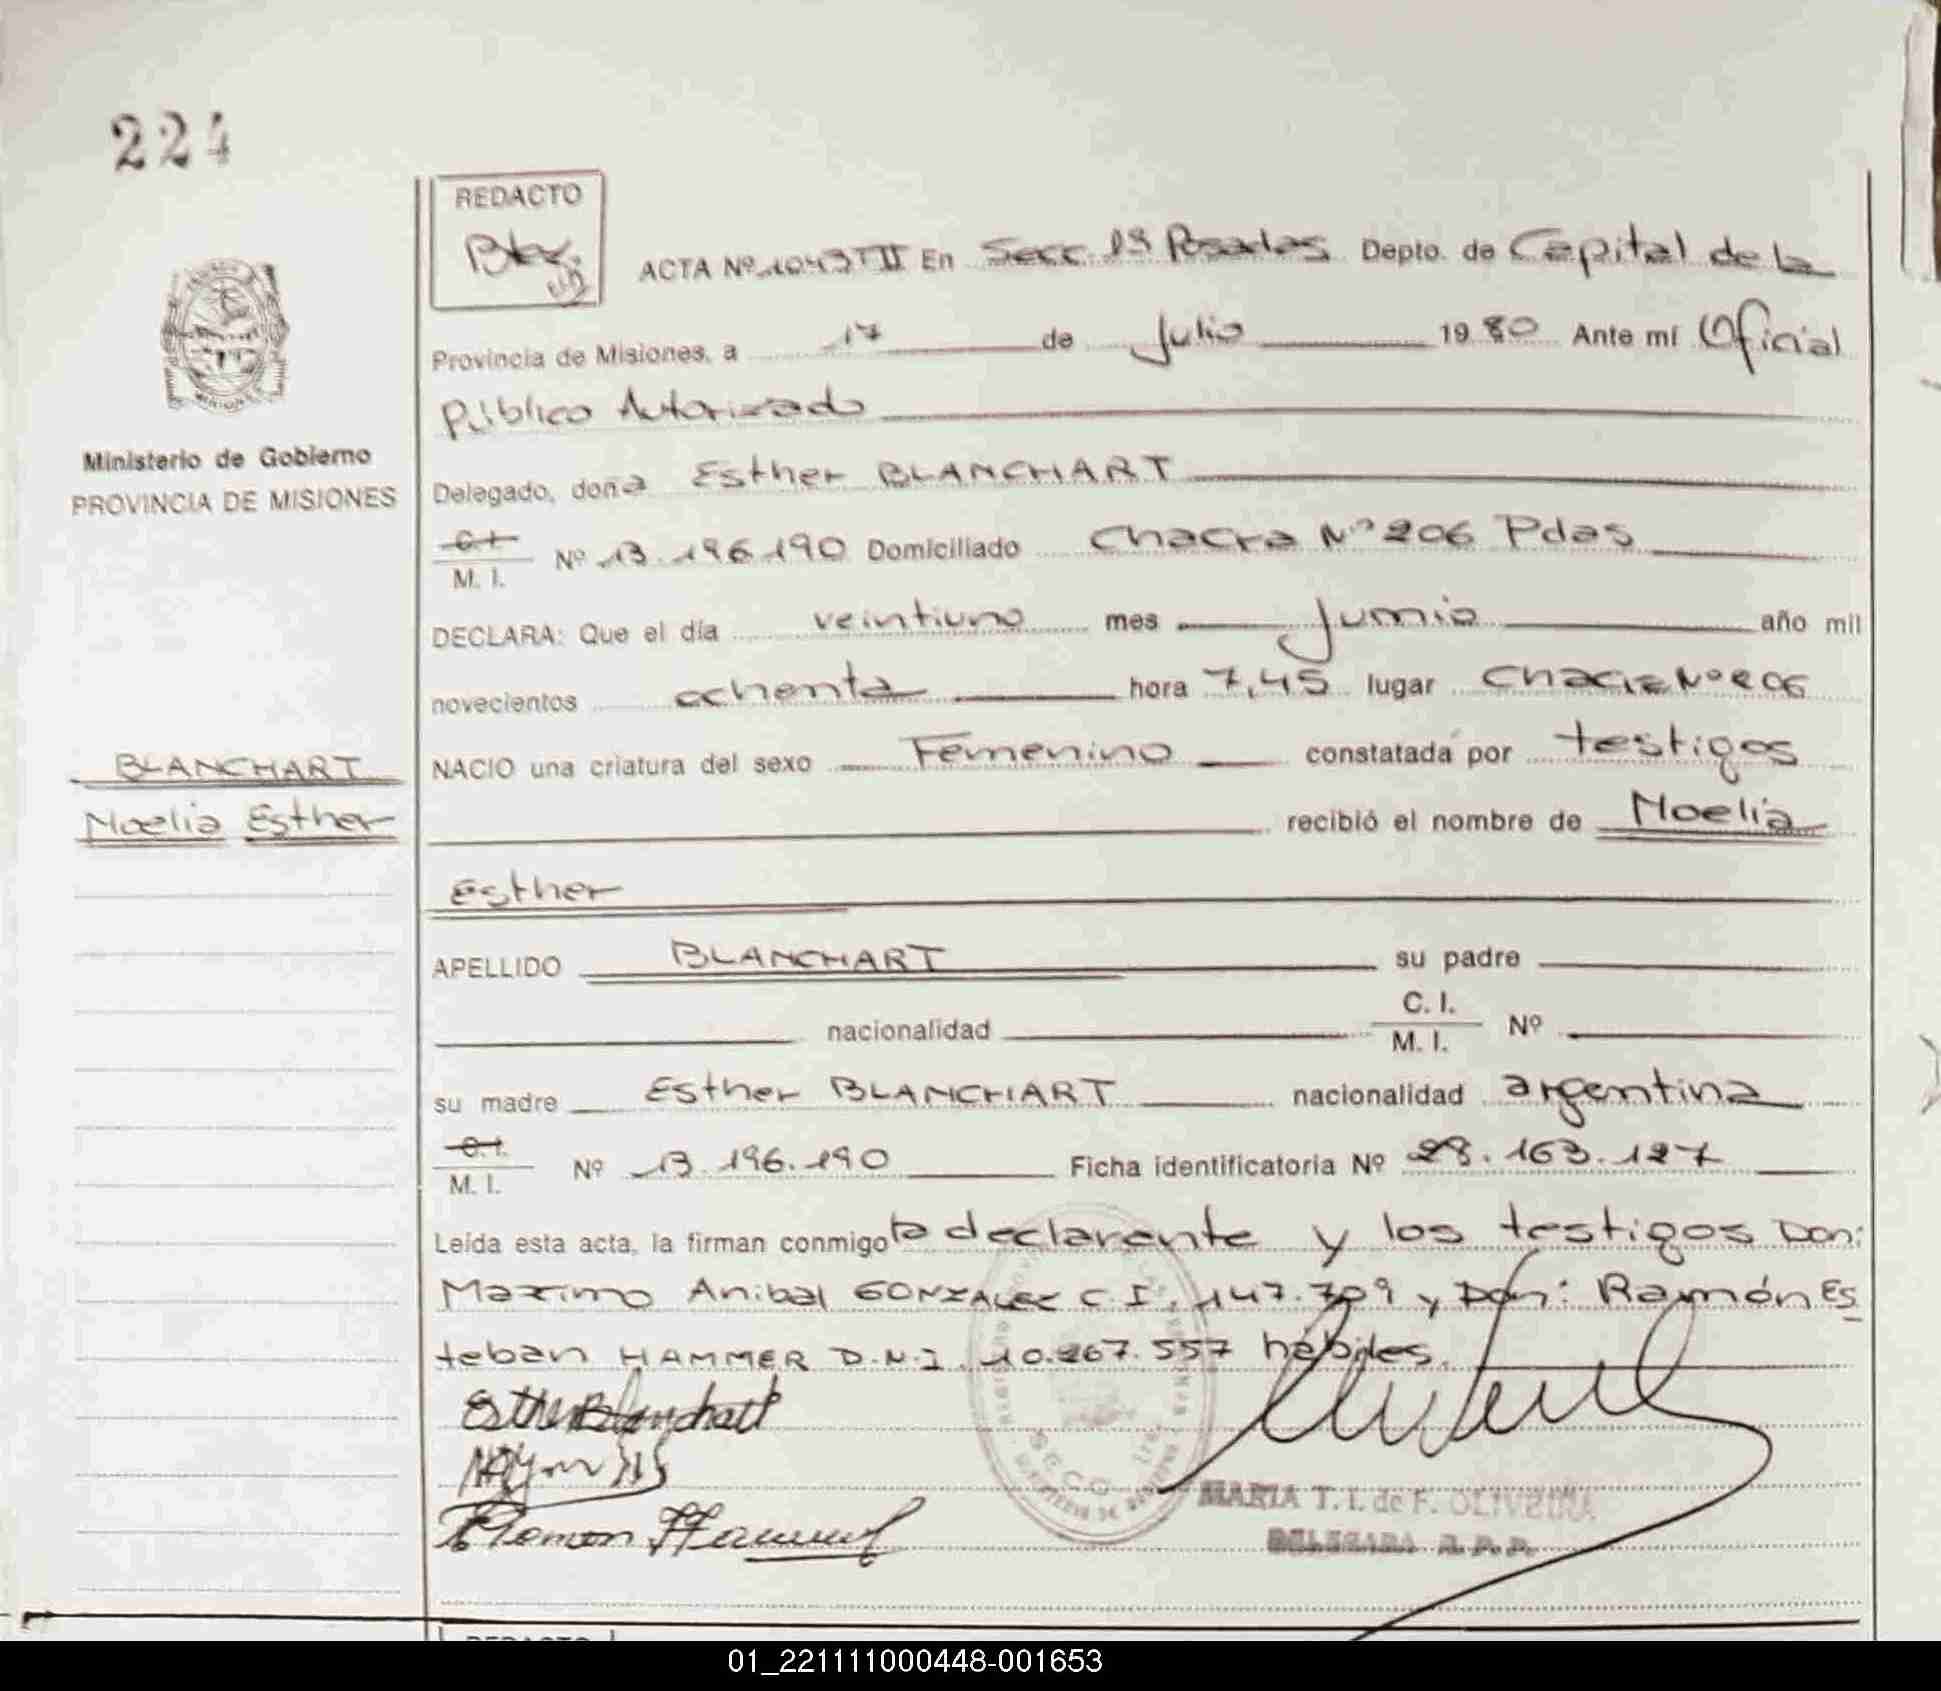 224
REDACTO
ACTA Nº 1043 T II En Secc. 1ª Posadas Depto. de Capital de la
Provincia de Misiones, a 17 de Julio 1980 Ante mí Oficial
Público Autorizado
Ministerio de Gobierno
PROVINCIA DE MISIONES
Delegado, doña Esther BLANCHART
C.I. M. I. Nº 13.196.190 Domiciliado Chacra Nº 206 Pdas
DECLARA: Que el día veintiuno mes Junio año mil
novecientos ochenta hora 7,45 lugar Chacra Nº 206
BLANCHART
Noelia Esther
NACIO una criatura del sexo Femenino constatada por testigos
recibió el nombre de Noelia
Esther
APELLIDO BLANCHART su padre
nacionalidad C. I. M. I. Nº
su madre Esther BLANCHART nacionalidad argentina
C.I. M. I. Nº 13.196.190 Ficha identificatoria Nº 28.163.127
Leída esta acta, la firman conmigo la declarante y los testigos Don:
Maximo Anibal GONZALEZ C.I. 147.709 y Don: Ramón Es
teban HAMMER D.N.I. 10.267.557 hábiles.
Esther Blanchart
Ramon Hammer
MARIA T. I. de F. OLIVEIRA
DELEGADA R. P. P.
REDACTO
01_221111000448-001653